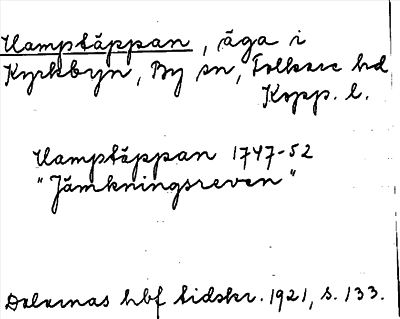 Kamptäppan, äga i
Kyrkbyn, By sn, Folkare hd
Kopp. l.
Kamptäppan 1747-52
"Jämkningsreven"
Dalarnas hbf tidskr. 1921, s. 133.